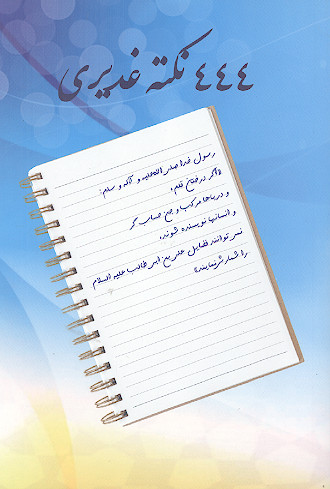 ۴۴۴ نکته غدیری
رسول خدا صلی الله علیه و آله و سلم:
«اگر درختان قلم،
و دریاها مرکب و جن حسابگر
و انسانها نویسنده شوند،
نمی توانند فضایل علی بن ابی طالب علیه السلام
را شمارش نمایند»